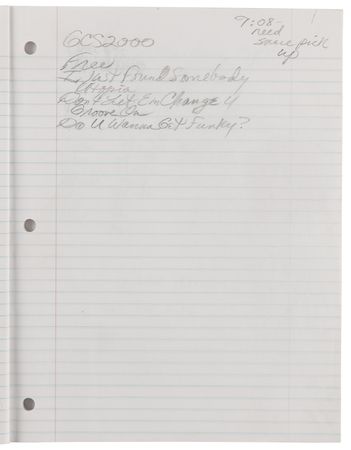 9:08-
need
same pick
up
GCS2000
Free
I Just Found Somebody
Utopia
Don't Let Em Change U
Groove On
Do U Wanna Get Funky?